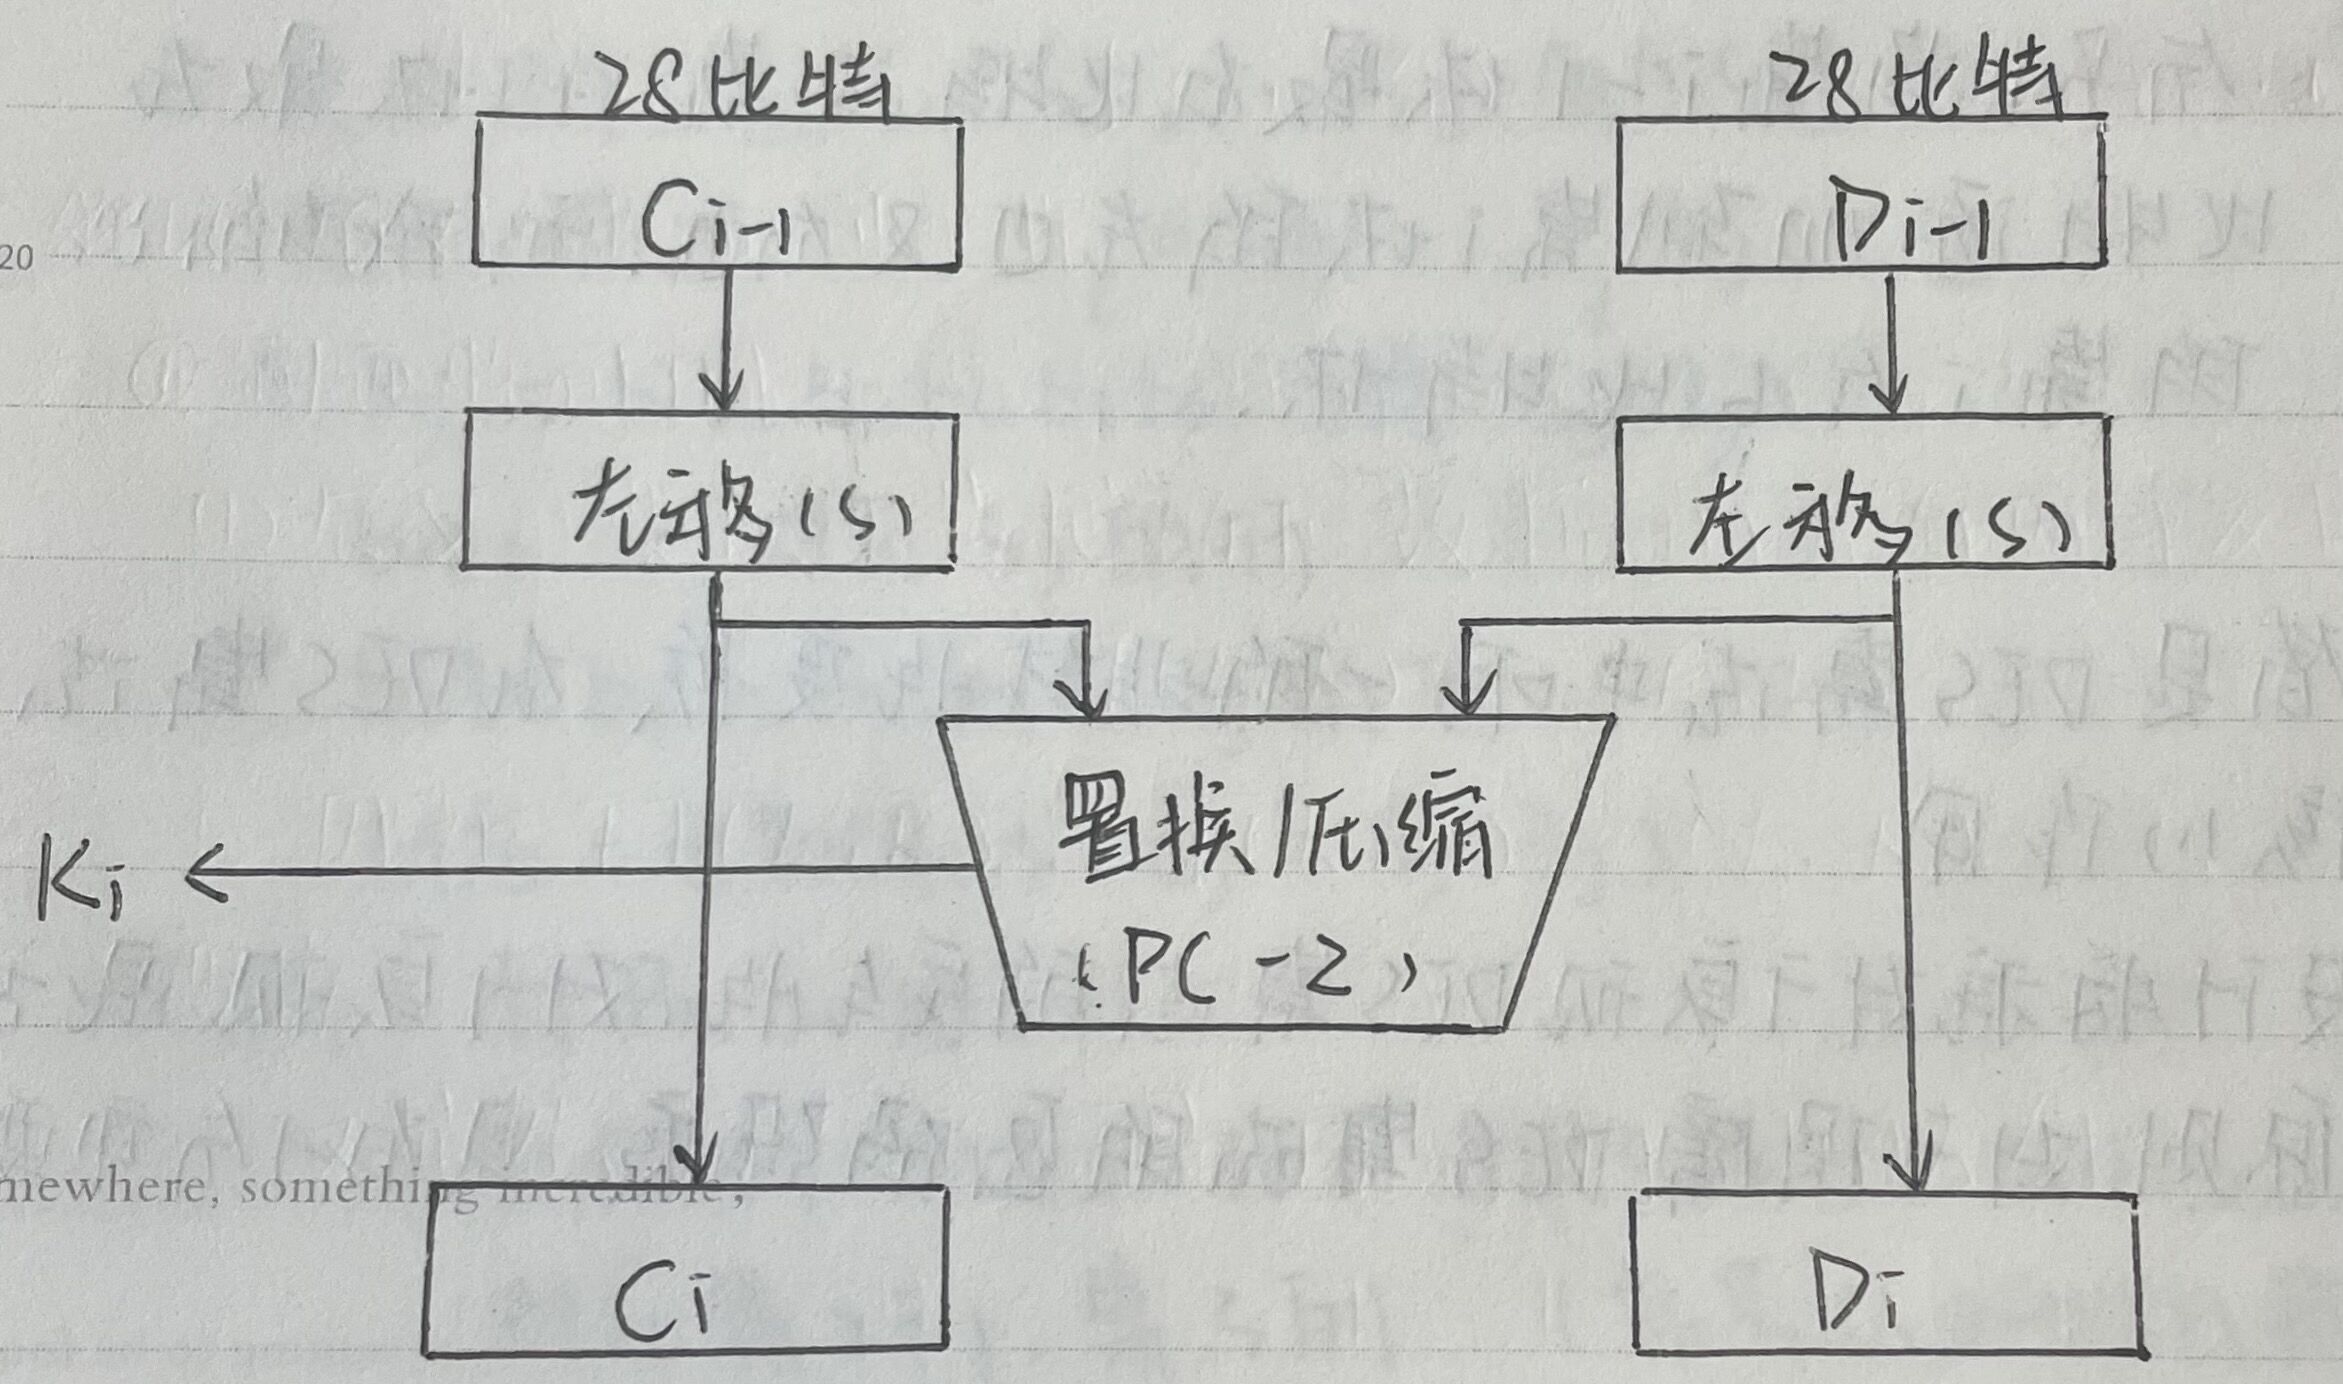 28比特
28比特
Ci-1
Di-1
20
左移(S)
左移(S)
置换/压缩
(PC-2)
Ki
mewhere, something incredible,
Ci
Di